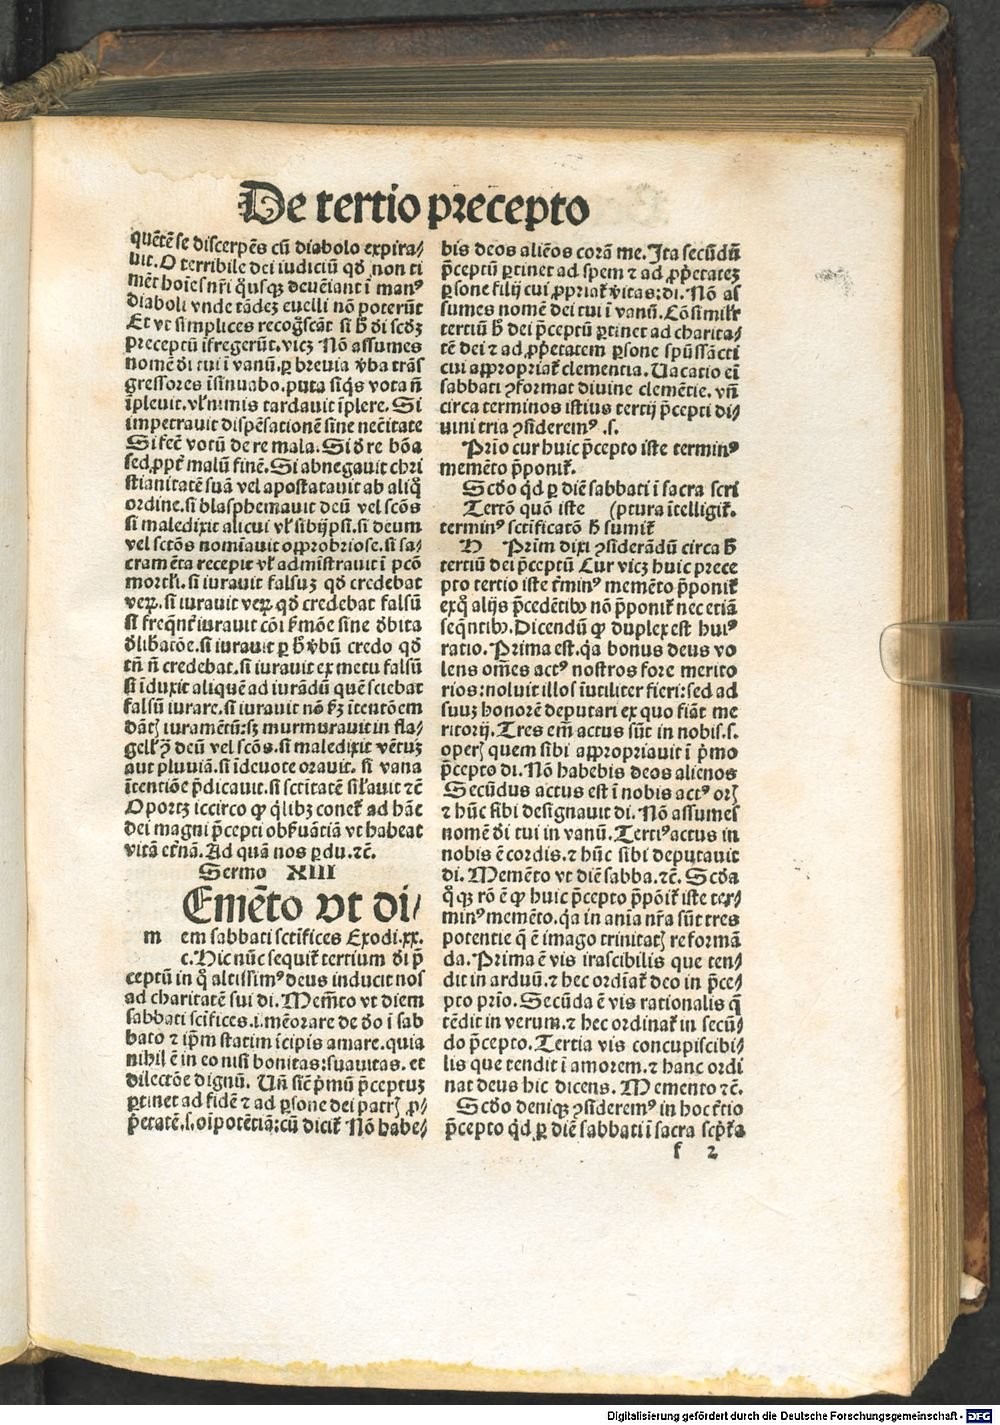 De tertio precepto
quētē se discerpēs cū diabolo expira/
uit. O terribile dei iudiciū qd̄ non ti
mēt hoīes nr̄i q̄usqꝫ deueniant ī manꝰ
diaboli vnde tādeꝫ euelli nō poterūt
Et vt simplices recog̃scāt si h̄ di scd̄ꝫ
preceptū īfregerūt. vicꝫ Nō assumes
nomē di tui ī vanū. ꝑ breuia v̄ba trās
gressores īsinuabo. puta si q̄s vota nō
īpleuit. vl̄ nimis tardauit īplere. Si
impetrauit dispēsationē sine nec̄itate
Si fec̄ votū de re mala. Si d̄ re bōa
sed ꝓpt̄ malū finē. Si abnegauit chri
stianitatē suā vel apostatauit ab aliq̊
ordine. si blasphemauit deū vel sc̄os
si maledixit alicui vl̄ sibijpsi. si deum
vel sctōs nomīauit opprobriose. si sa/
cramēta recepit vl̄ admīstrauit ī pcō
mortlī. si iurauit falsuꝫ qd̄ credebat
veꝝ. si iurauit veꝝ qd̄ credebat falsū
si freq̄nt̄ iurauit cōi s̄mōe sine d̄bita
d̄libatōe. si iurauit ꝑ h̄ v̄bū credo qd̄
tn̄ nō credebat. si iurauit ex metu falsū
si īduxit aliquē ad iurādū quē sciebat
falsū iurare. si iurauit nō ẜꝫ ītentōem
dātꝭ iuramētū: sꝫ murmurauit in fla/
gellꝭ ꝯ̄ deū vel scōs. si maledixit vētuꝫ
aut pluuiā. si īdeuote orauit. si vana
ītentiōe p̄dicauit. si sctītatē sil̄auit ⁊c̄
Oportꝫ iccirco ꝙ q̄libꝫ conet̄ ad hāc
dei magni p̄cepti obẜuātiā vt habeat
vitā et̄nā. Ad quā nos ꝑdu. ⁊c̄.
Sermo XIII
Emēto vt di/
m em sabbati sctīfices Exodi. xx.
c. Hic nūc sequit̄ tertium di p̄
ceptū in q̊ altissimꝰ deus inducit nos
ad charitatē sui di. Mem̄to vt diem
sabbati scīfices. i. mēorare de d̄o ī sab
bato ⁊ ip̄m statim īcipis amare. quia
nihil ē in eo nisi bonitas: suauitas. et
dilectōe dignū. Uñ sic̄ p̄mū p̄ceptuꝫ
ꝑtinet ad fidē ⁊ ad ꝑsone dei patrꝭ ꝓ/
p̄etatē. s. oīpotētiā: cū dicit̄ Nō habe/
bis deos aliēos corā me. Ita secūdū
p̄ceptū ꝑtinet ad spem ⁊ ad ꝓp̄etateꝫ
ꝑsone filij cui ꝓpriat̄ v̄itas: di. Nō as
sumes nomē dei tui ī vanū. Cōsimilr̄
tertiū h̄ dei p̄ceptū ꝑtinet ad charita/
tē dei ⁊ ad ꝓp̄etatem ꝑsone spūssācti
cui appropriat̄ clementia. Uacatio eī
sabbati ꝯformat diuine clemētie. vn̄
circa terminos istius tertij p̄cepti di/
uini tria ꝯsideremꝰ .s.
Prīo cur huic p̄cepto iste terminꝰ
memēto p̄ponit̄.
Scd̄o qd̄ ꝑ diē sabbati ī sacra scri
Tertō quō iste (ptura ītelligit̄.
terminꝰ sctīficatō h̄ sumit̄
H Prīm dixi ꝯsiderādū circa h̄
tertiū dei p̄ceptū Cur vicꝫ huic prece
pto tertio iste t̄minꝰ memēto p̄ponit̄
ex q̊ alijs p̄cedētibꝰ nō p̄ponit̄ nec etiā
seq̄ntibꝰ. Dicendū ꝙ duplex est huiꝰ
ratio. Prima est. q̄a bonus deus vo
lens om̄es actꝰ nostros fore merito
rios: noluit illos īutiliter fieri: sed ad
suuꝫ honorē deputari ex quo fiāt me
ritorij. Tres em̄ actus sūt in nobis. s.
operꝭ quem sibi appropriauit ī p̄mo
p̄cepto di. Nō habebis deos alienos
Secūdus actus est ī nobis actꝰ orꝭ
⁊ hūc sibi designauit di. Nō assumes
nomē di tui in vanū. Tertiꝰ actus in
nobis ē cordis. ⁊ hūc sibi deputauit
di. Memēto vt diē sabba. ⁊c̄. Scd̄a
q̊qꝫ rō ē ꝙ huic p̄cepto p̄pōit̄ iste ter/
minꝰ memēto. q̄a in anīa nr̄a sūt tres
potentie q̄ ē imago trinitatꝭ reformā
da. Prima ē vis irascibilis que ten/
dit in arduū. ⁊ hec ordīat̄ deo in p̄ce/
pto prīo. Secūda ē vis rationalis q̄
tēdit in verum. ⁊ hec ordinat̄ in secū/
do p̄cepto. Tertia vis concupiscibi/
lis que tendit ī amorem. ⁊ hanc ordi
nat deus hic dicens. Memento ⁊c̄.
Scd̄o deniqꝫ ꝯsideremꝰ in hoc t̄tio
p̄cepto qd̄ ꝑ diē sabbati ī sacra scp̄t̄a
f 2
Digitalisierung gefördert durch die Deutsche Forschungsgemeinschaft - DFG